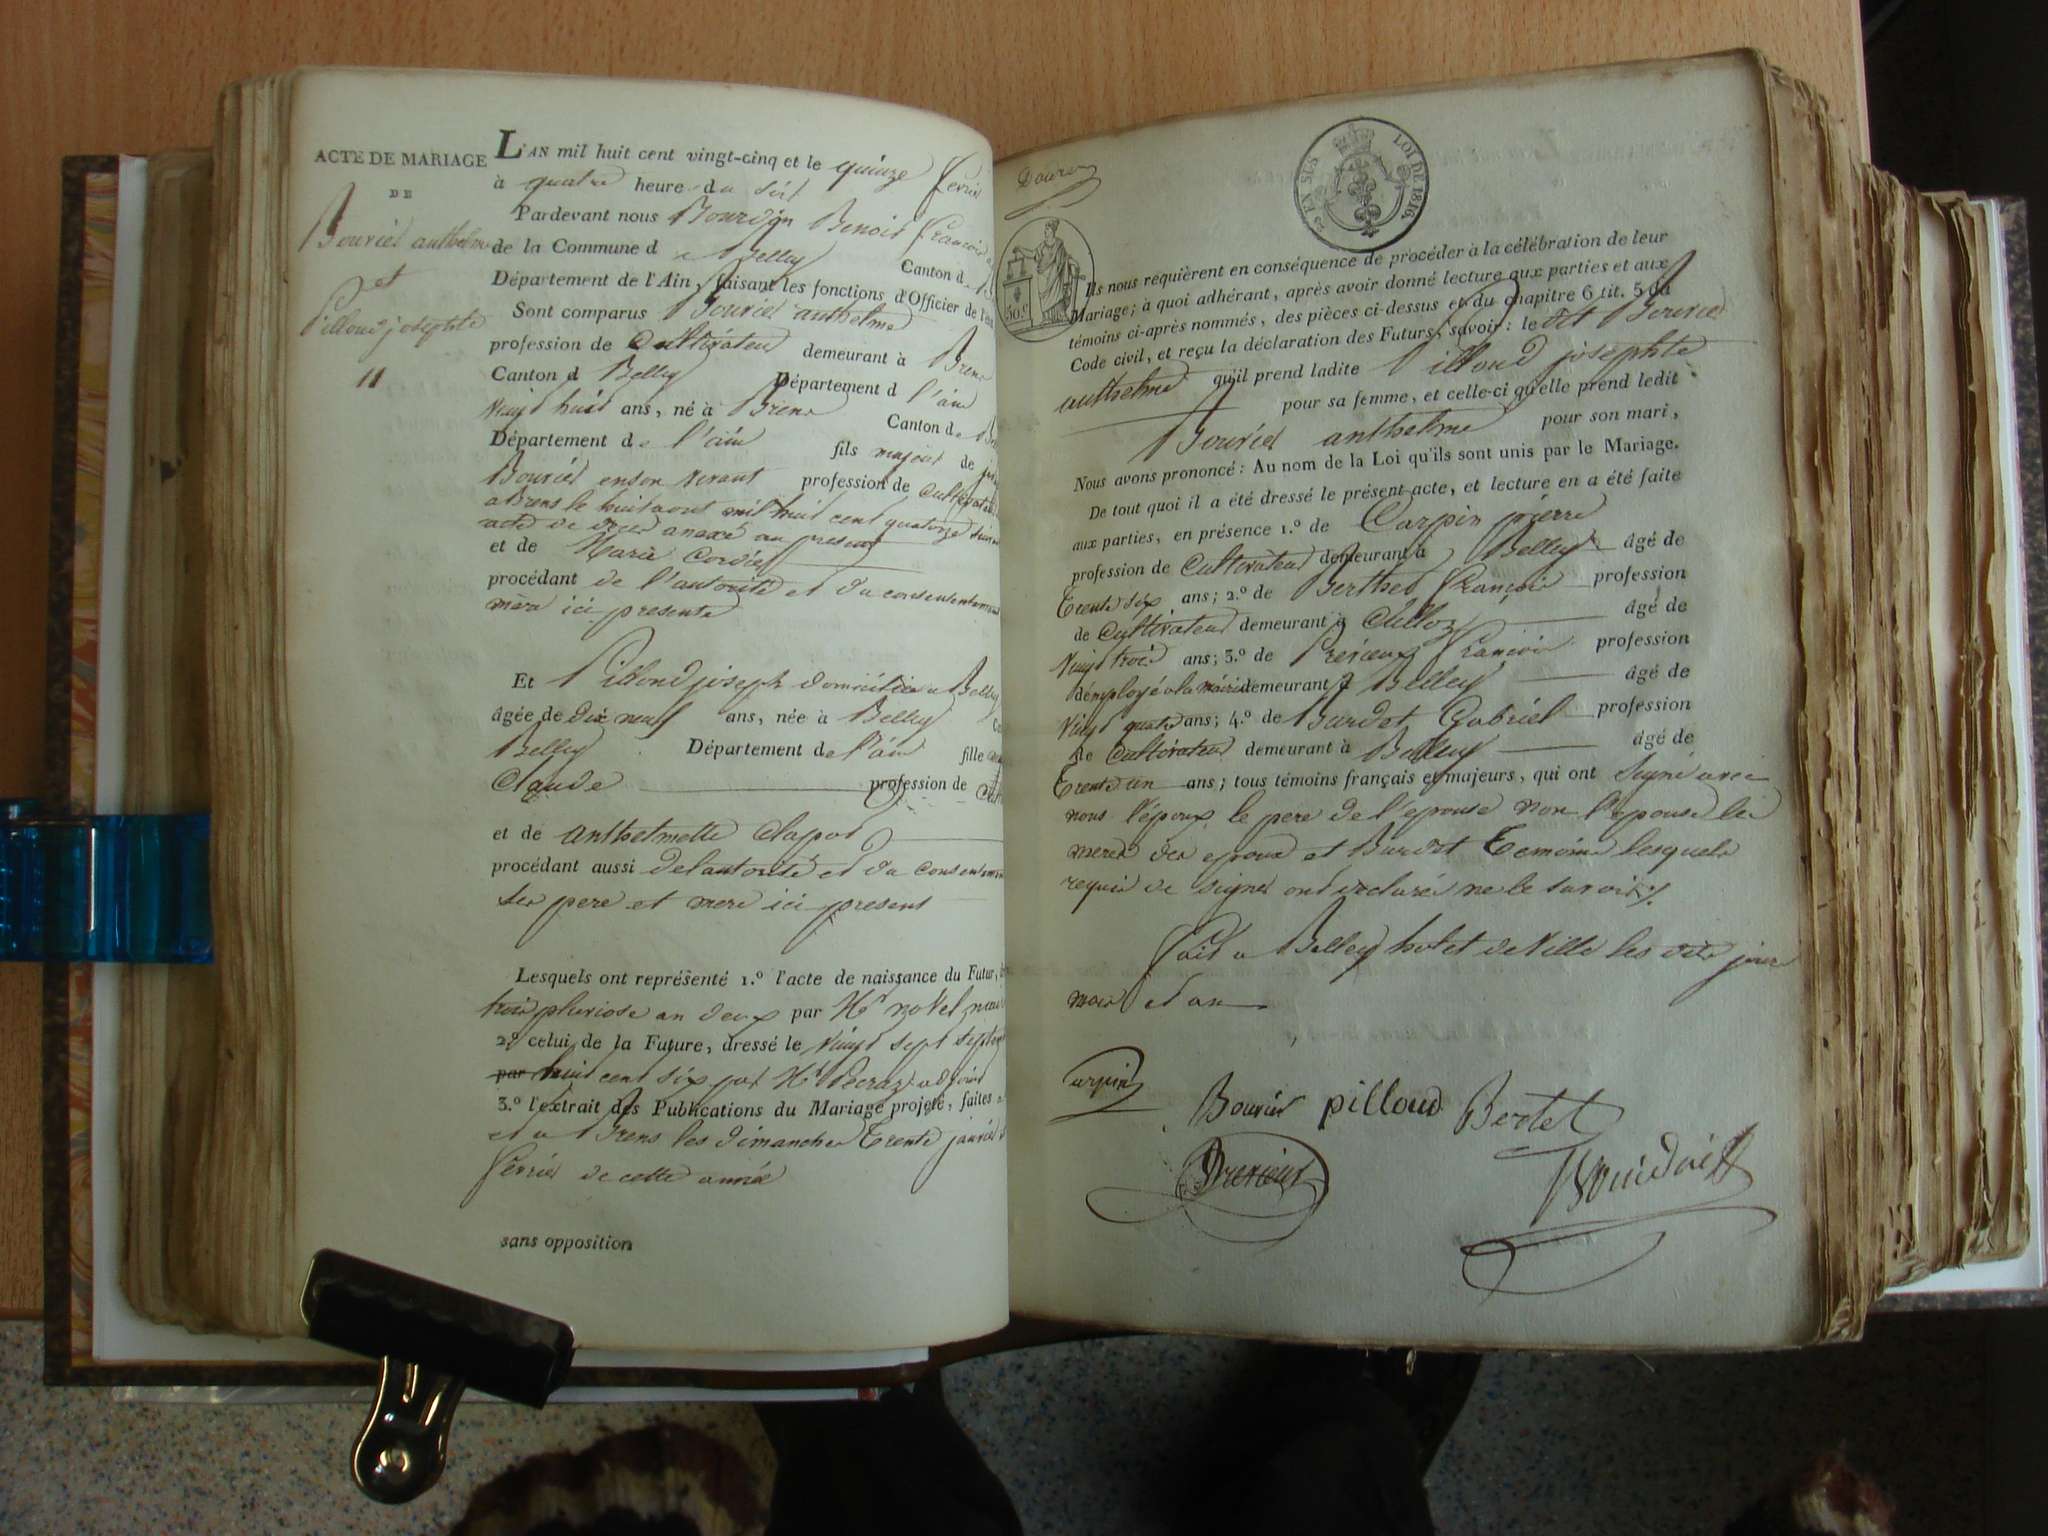 ACTE DE MARIAGE
DE
Bourier anthelme
et
Pilloud josephte
11
L'AN mil huit cent vingt-cinq et le quinze fevrier
à quatre heure du soir
Pardevant nous Benoit françois
de la Commune de Belley Canton d
Département de l'Ain, faisant les fonctions d'Officier de l'ét
Sont comparus Bourier anthelme
profession de Cultivateur demeurant à Brens
Canton d Belley Département d l'ain
vingt huit ans, né à Brens Canton de B
Département de l'ain fils majeur de
Bourier en son vivant profession de Cultivateur
a Brens le huit aout mil huit cent quatorze suivant
acte de deces anexé au present
et de Marie Cordier
procédant de l'autorité et du consentement
mère ici presente
Et Pilloud joseph domiciliée a Belley
âgée de dix neuf ans, née à Belley
Belley Département de l'ain fille
Claude profession de
et de anthelmette Clapot
procédant aussi de l'autorité et du consentement
ses pere et mere ici present
Lesquels ont représenté 1.º l'acte de naissance du Futur,
trois pluviose an deux par Mr
2.º celui de la Future, dressé le vingt sept septem
par huit cent six par Mr Pecraz adjoint
3.º l'extrait des Publications du Mariage projeté, faites
et a Brens les dimanches trente janvier
fevrier de cette année
sans opposition
LOI DE 1816.
50 c
Ils nous requièrent en conséquence de procéder à la célébration de leur
Mariage; à quoi adhérant, après avoir donné lecture aux parties et aux
témoins ci-après nommés, des pièces ci-dessus et du chapitre 6 tit. 5 du
Code civil, et reçu la déclaration des Futurs, savoir: le dit Bourier
anthelme qu'il prend ladite Pilloud josephte
pour sa femme, et celle-ci qu'elle prend ledit
Bourier anthelme pour son mari,
Nous avons prononcé: Au nom de la Loi qu'ils sont unis par le Mariage.
De tout quoi il a été dressé le présent acte, et lecture en a été faite
aux parties, en présence 1.º de Carpin pierre
profession de Cultivateur demeurant à Belley âgé de
trente six ans; 2.º de Berthet françois profession
de Cultivateur demeurant à âgé de
vingt trois ans; 3.º de Prerieur françois profession
d'employé a la mairie demeurant à Belley âgé de
vingt quatre ans; 4.º de Burdet Gabriel profession
de Cultivateur demeurant à Belley âgé de
trente un ans; tous témoins français et majeurs, qui ont signé avec
nous l'époux le pere de l'epouse non l'epouse les
meres des epoux et Burdet temoins lesquels
requis de signer ont declaré ne le savoir
fait a Belley hotel de Ville les dits jour
mois et an
Carpin
Bourier pilloud Bertet
Prerieur